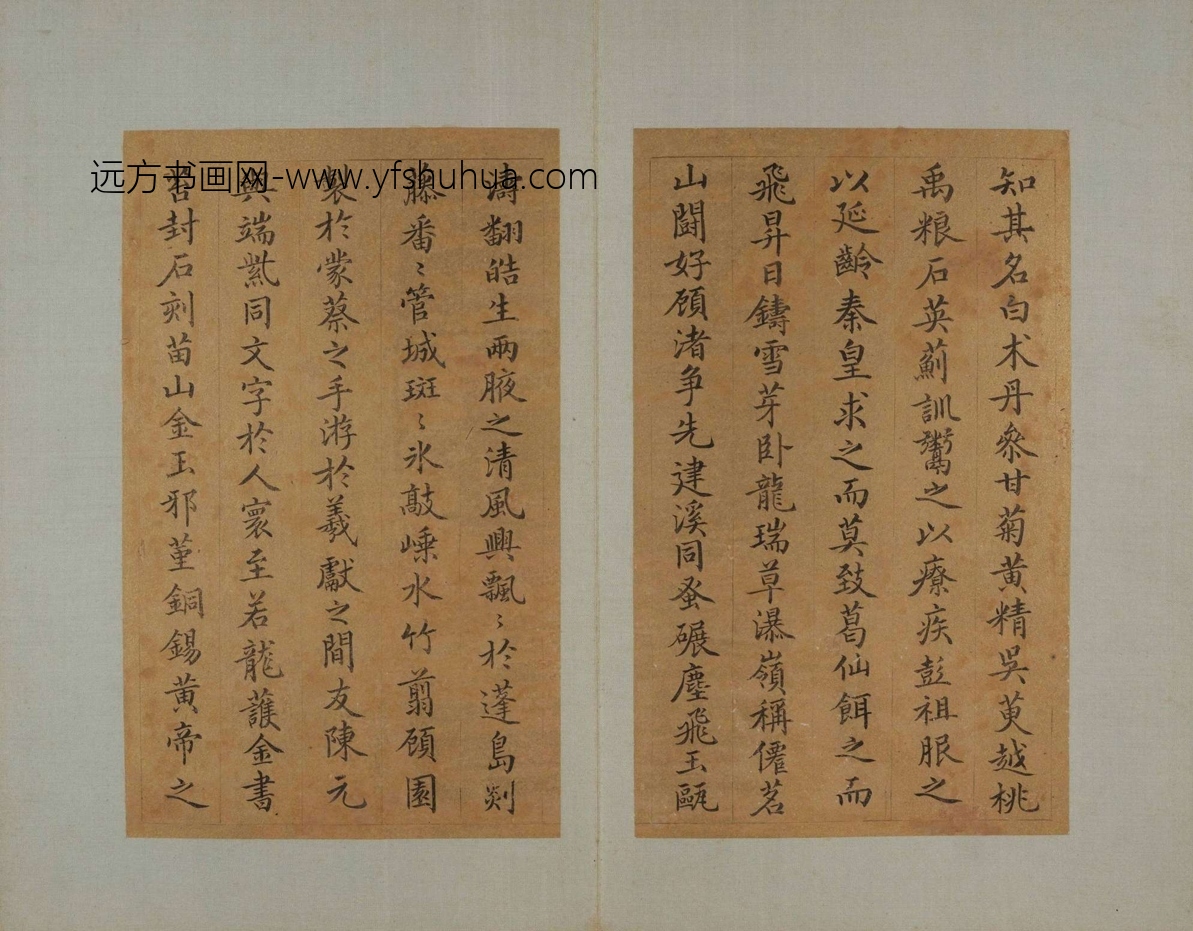 知其名白术丹參甘菊黄精吳萸越桃
禹粮石英薊訓鬻之以療疾彭祖服之
以延齡秦皇求之而莫致葛仙餌之而
飛昇日鑄雪芽卧龍瑞草瀑嶺稱僊茗
山鬪好顧渚争先建溪同蚤碾塵飛玉甌
濤翻皓生兩腋之清風興飄〻於蓬島剡
藤番〻管城斑〻氷敲嵊水竹翦顧園
製於蒙蔡之手游於羲獻之間友陳元
與端紫同文字於人寰至若龍護金書
苔封石刻苗山金玉邪堇銅錫黄帝之
远方书画网-www.yfshuhua.com